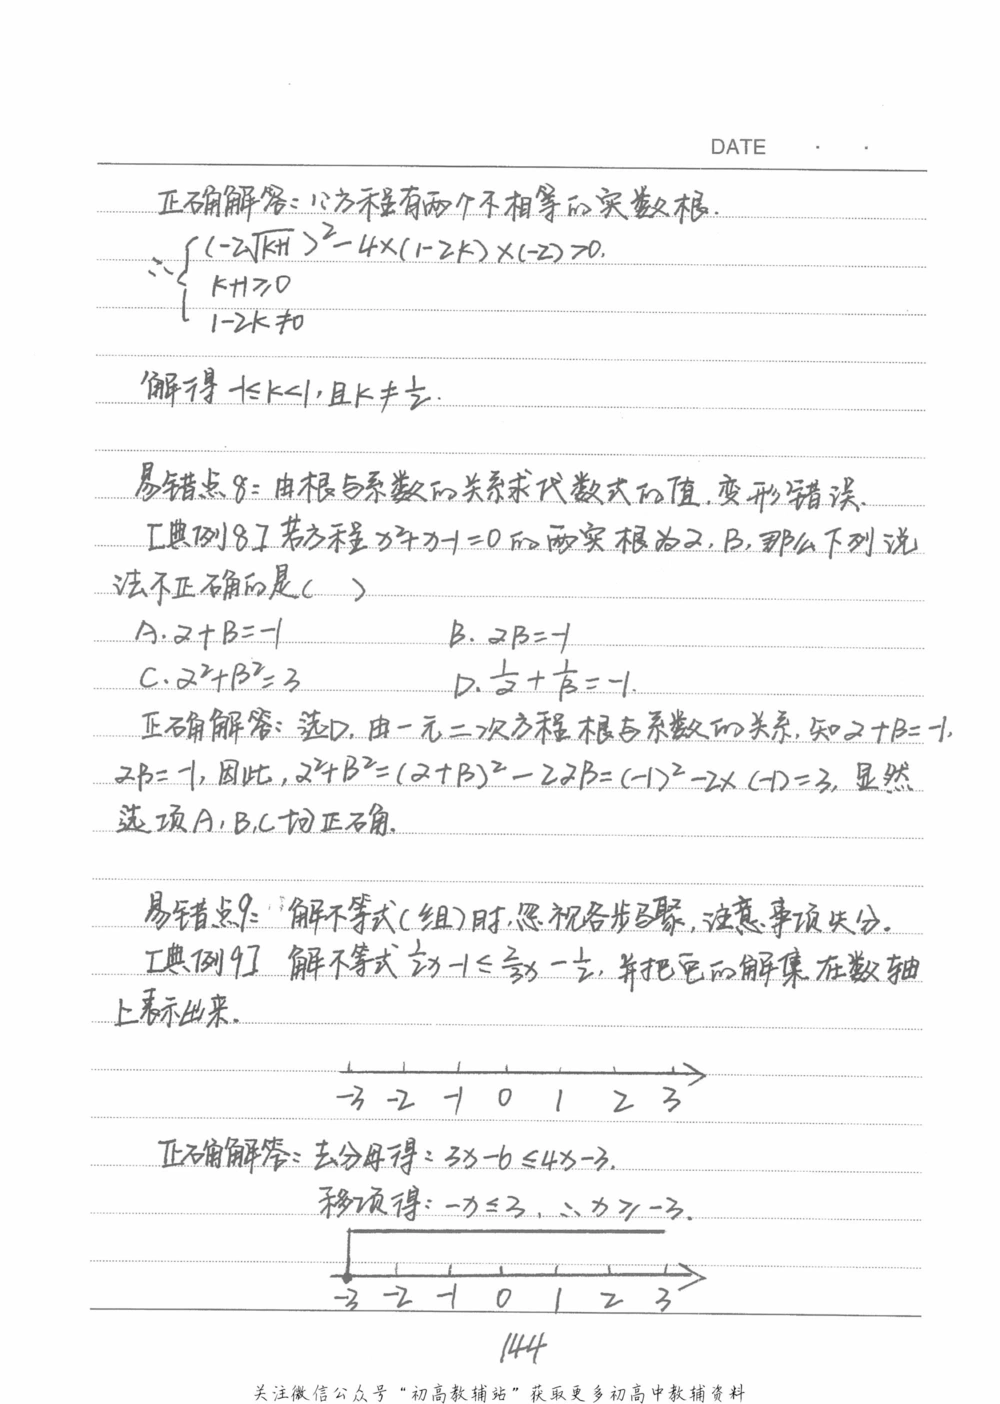 DATE · ·
正确解答：∵方程有两个不相等的实数根.
∴{(-2√k+1)²-4×(1-2k)×(-2)>0.
k+1≥0
1-2k≠0
解得 -1≤k<1,且k≠1/2.
易错点8：由根与系数的关系求代数式的值,变形错误.
[典例8]若方程x²+x-1=0的两实根为α,β,那么下列说
法不正确的是( )
A.α+β=-1 B.αβ=-1
C.α²+β²=3 D.1/α+1/β=-1.
正确解答：选D,由一元二次方程根与系数的关系,知α+β=-1,
αβ=-1,因此,α²+β²=(α+β)²-2αβ=(-1)²-2×(-1)=3,显然
选项A,B,C均正确.
易错点9：解不等式(组)时,忽视各步骤,注意事项失分.
[典例9] 解不等式1/2x-1≤2/3x-1/2,并把它的解集在数轴
上表示出来.
-3 -2 -1 0 1 2 3
正确解答：去分母得：3x-6≤4x-3.
移项得：-x≤3,∴x≥-3.
-3 -2 -1 0 1 2 3
144
关注微信公众号“初高教辅站”获取更多初高中教辅资料